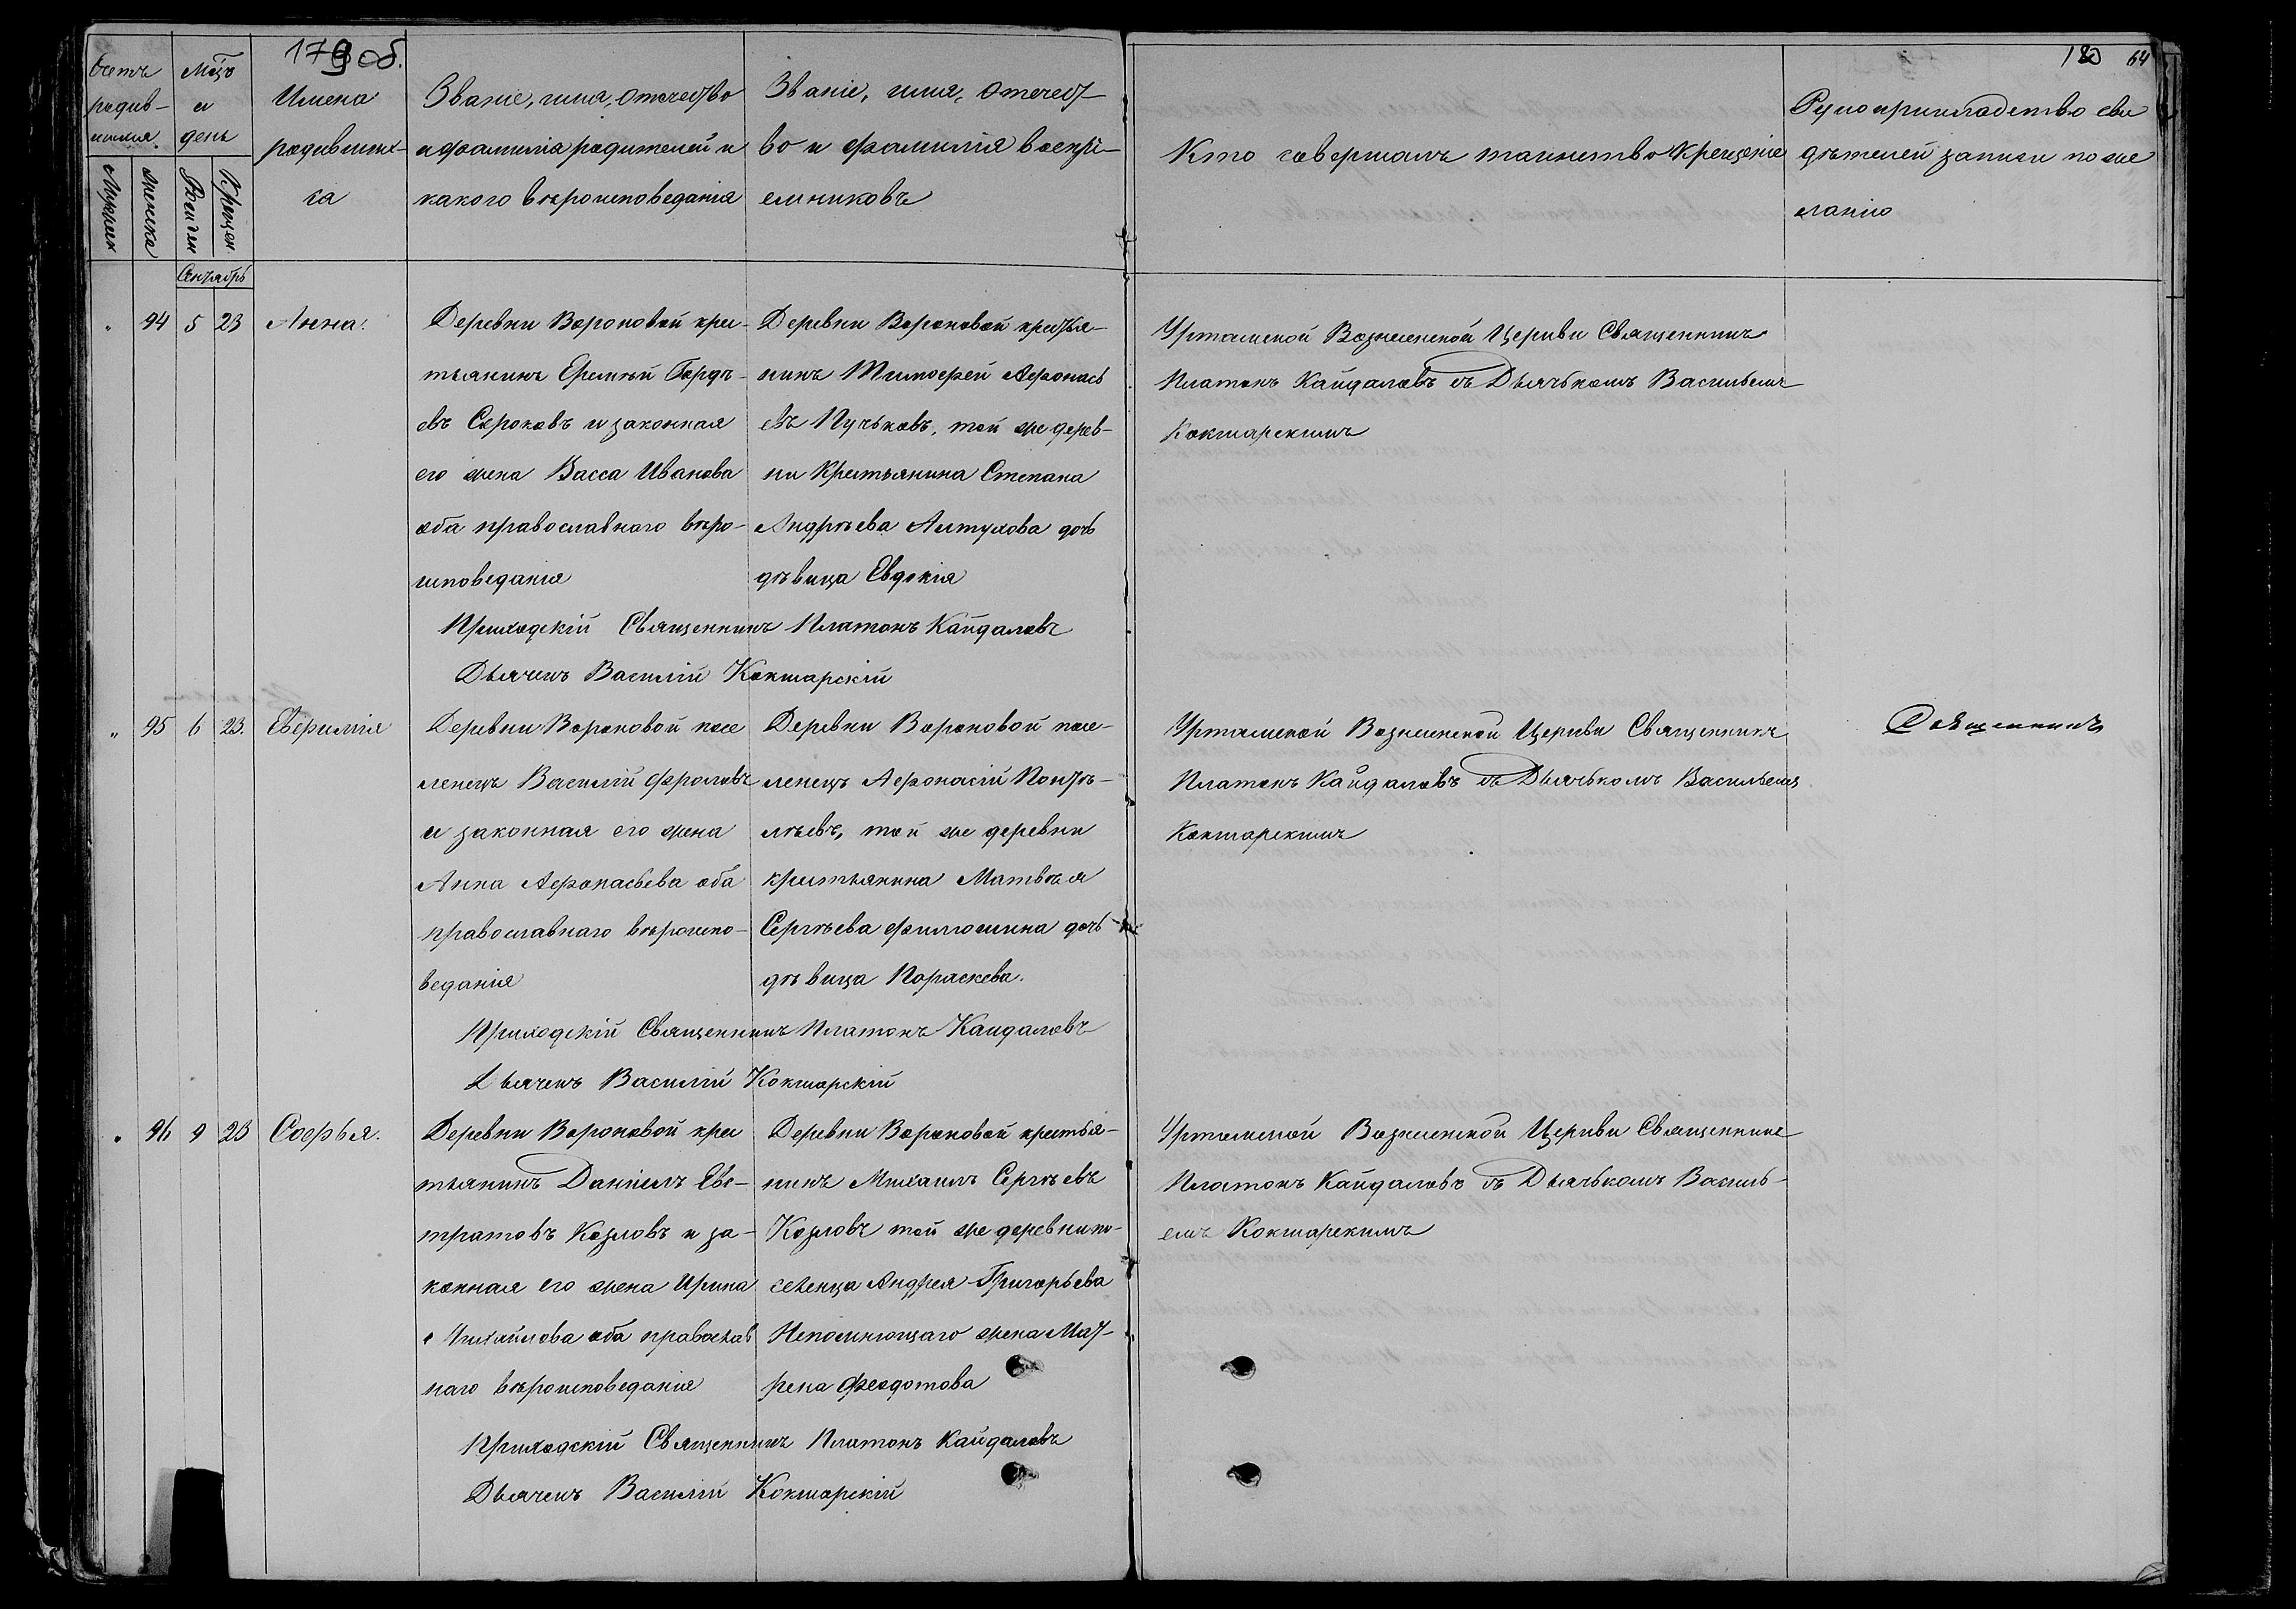 179 об.
180 64
Счетъ родив-шихся.
Мужеск
женска
Мцъ и день
Рожден
Крещен.
Имена родившихся-са
Званіе, имя, отечество
и фамилія родителей и
какого вѣроисповеданія
Званіе, имя, отечест-
во и фамилія воспрі-
емниковъ
Кто совершалъ таинство крещеніе
Рукоприкладство сви
дѣтелей записи по же
ланію
Сентябрь
" 94 5 23 Анна.
Деревни Вороновой крес-
тьянинъ Еремѣй Гордѣ-
евъ Сороковъ и законная
его жена Васса Иванова
оба православнаго вѣро-
исповеданія
Деревни Вороновой крестья-
нинъ Тимофей Афонась
евъ Пучьковъ, той же дерев-
ни Крестьянина Степана
Андрѣева Алтухова дочь
дѣвица Евдокія
Уртамской Вознесенской Церкви Священникъ
Платонъ Кайдаловъ съ Дьячькомъ Васильемъ
Кокшарскимъ
Приходскій Священникъ Платонъ Кайдаловъ
Дьячекъ Василій Кокшарскій
" 95 6 23. Евфимія
Деревни Вороновой посе
ленецъ Василій Фроловъ
и законная его жена
Анна Афонасьева оба
православнаго вѣроиспо-
веданія
Деревни Вороновой посе-
ленецъ Афонасій Понтѣ-
лѣевъ, той же деревни
крестьянина Матвѣя
Сергѣева Филюшина дочь
дѣвица Пораскева.
Уртамской Вознесенской Церкви Священникъ
Платонъ Кайдаловъ съ Дьячькомъ Васильемъ
Кокшарскимъ
Священникъ
Приходскій Священникъ Платонъ Кайдаловъ
Дьячекъ Василій Кокшарскій
" 96 9 23 Софья.
Деревни Вороновой крес
тьянинъ Даніилъ Евс-
тратовъ Козловъ и за-
конная его жена Ирина
Михайлова оба православ
наго вѣроисповеданія
Деревни Вороновой крестья-
нинъ Михаилъ Сергѣевъ
Козловъ той же деревни по-
селенца Андрея Григорьева
Непомнющаго жена Мат-
рена Феодотова
Уртамской Вознесенской Церкви Священникъ
Платонъ Кайдаловъ съ Дьячькомъ Василь-
емъ Кокшарскимъ
Приходскій Священникъ Платонъ Кайдаловъ
Дьячекъ Василій Кокшарскій